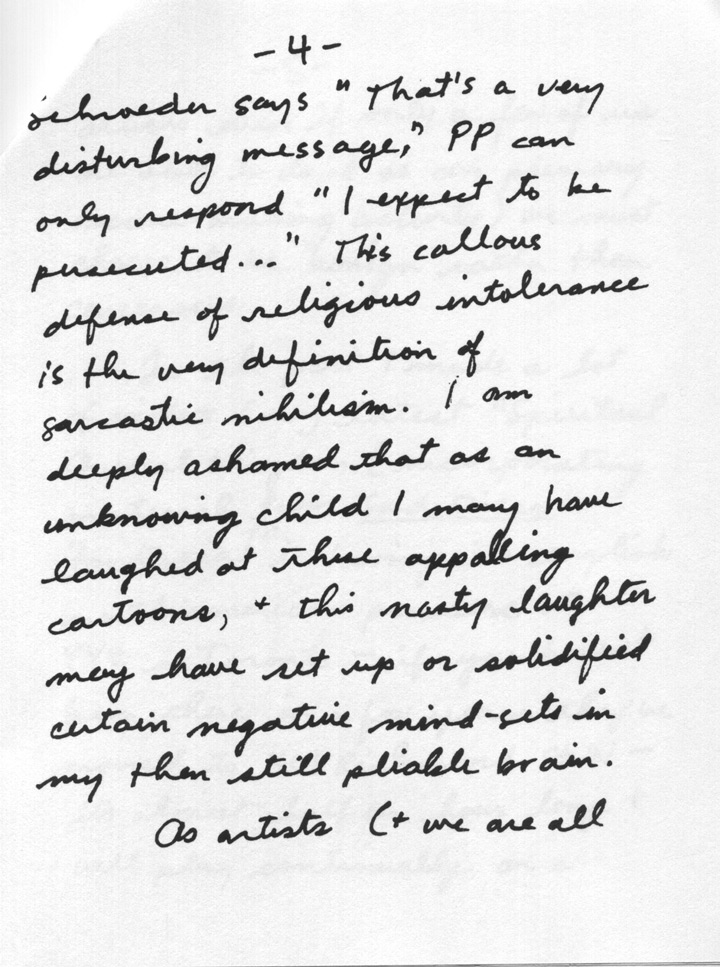 -4-
Schroeder says "That's a very
disturbing message," PP can
only respond "I expect to be
persecuted..." This callous
defense of religious intolerance
is the very definition of
sarcastic nihilism. I am
deeply ashamed that as an
unknowing child I may have
laughed at these appalling
cartoons, + this nasty laughter
may have set up or solidified
certain negative mind-sets in
my then still pliable brain.
As artists (+ we are all